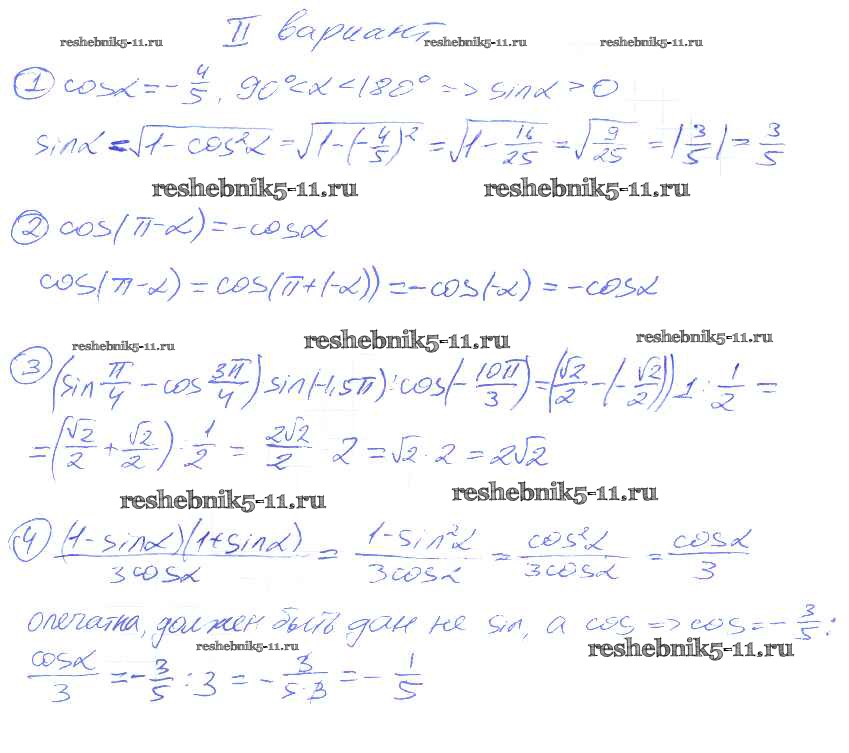 II вариант
reshebnik5-11.ru reshebnik5-11.ru reshebnik5-11.ru
① cosα = -4/5, 90° < α < 180° => sinα > 0
sinα = √(1 - cos²α) = √(1 - (-4/5)²) = √(1 - 16/25) = √(9/25) = |3/5| = 3/5
reshebnik5-11.ru reshebnik5-11.ru
② cos(π-α) = -cosα
cos(π-α) = cos(π+(-α)) = -cos(-α) = -cosα
reshebnik5-11.ru reshebnik5-11.ru reshebnik5-11.ru
③ (sin π/4 - cos 3π/4) sin(-1,5π) : cos(-10π/3) = (√2/2 - (-√2/2)) 1 : 1/2 =
= (√2/2 + √2/2) : 1/2 = 2√2/2 · 2 = √2 · 2 = 2√2
reshebnik5-11.ru reshebnik5-11.ru
④ (1-sinα)(1+sinα)/3cosα = 1-sin²α/3cosα = cos²α/3cosα = cosα/3
опечатка, должен быть дан не sin, а cos => cos = -3/5:
reshebnik5-11.ru reshebnik5-11.ru
cosα/3 = -3/5 : 3 = -3/5·3 = -1/5